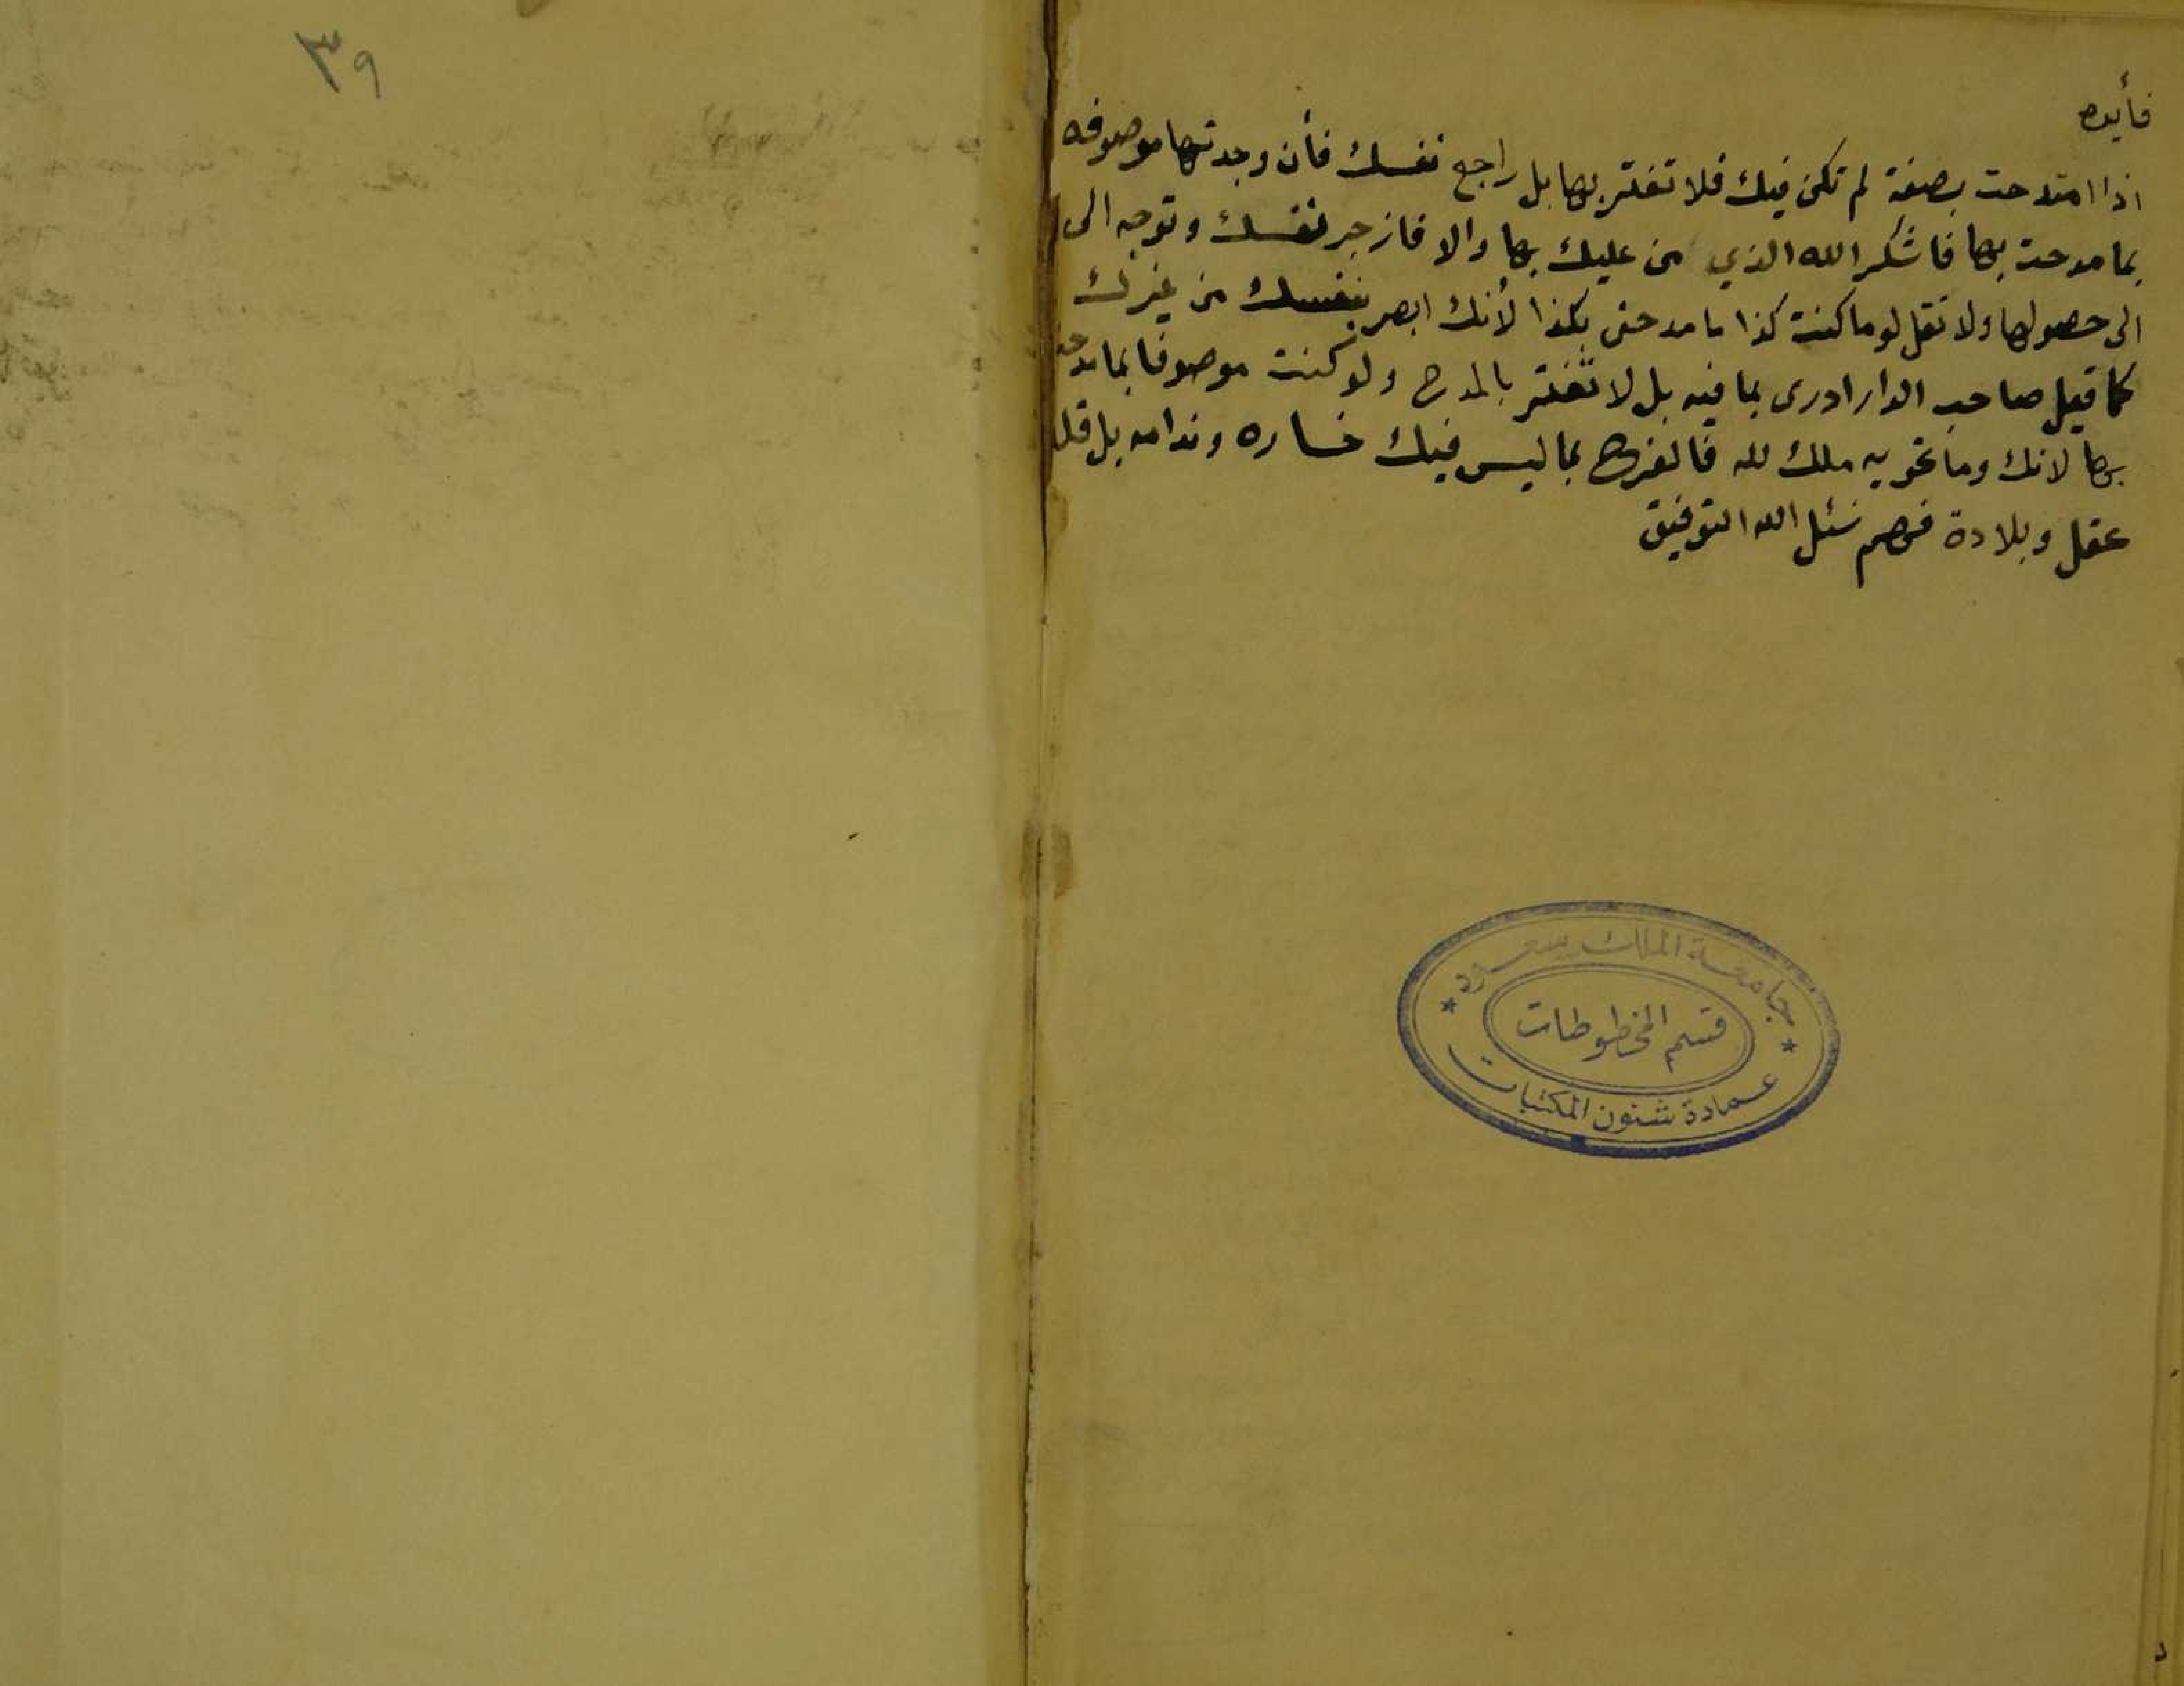 فأيده
اذا امتدحت بصفة لم تكن فيك فلا تغتر بها بل راجع نفسك فأن وجدتها موصوفه
بما مدحت بها فاشكر الله الذي من عليك بها والا فازجر نفسك وتوجه الى
الى حصولها ولا تقل لو ما كنت كذا ما مدحنى بكذا لأنك ابصر بنفسك من غيرك
كما قيل صاحب الدار ادرى بما فيه بل لا تغتر بالمدح ولو كنت موصوفا بما مدحت
بها لانك وما تحويه ملك لله فالفرح بما ليس فيك خساره وندامه بل قلة
عقل وبلادة فهم نسئل الله التوفيق
جامعة الملك سعود
قسم المخطوطات
عمادة شئون المكتبات
٣٩